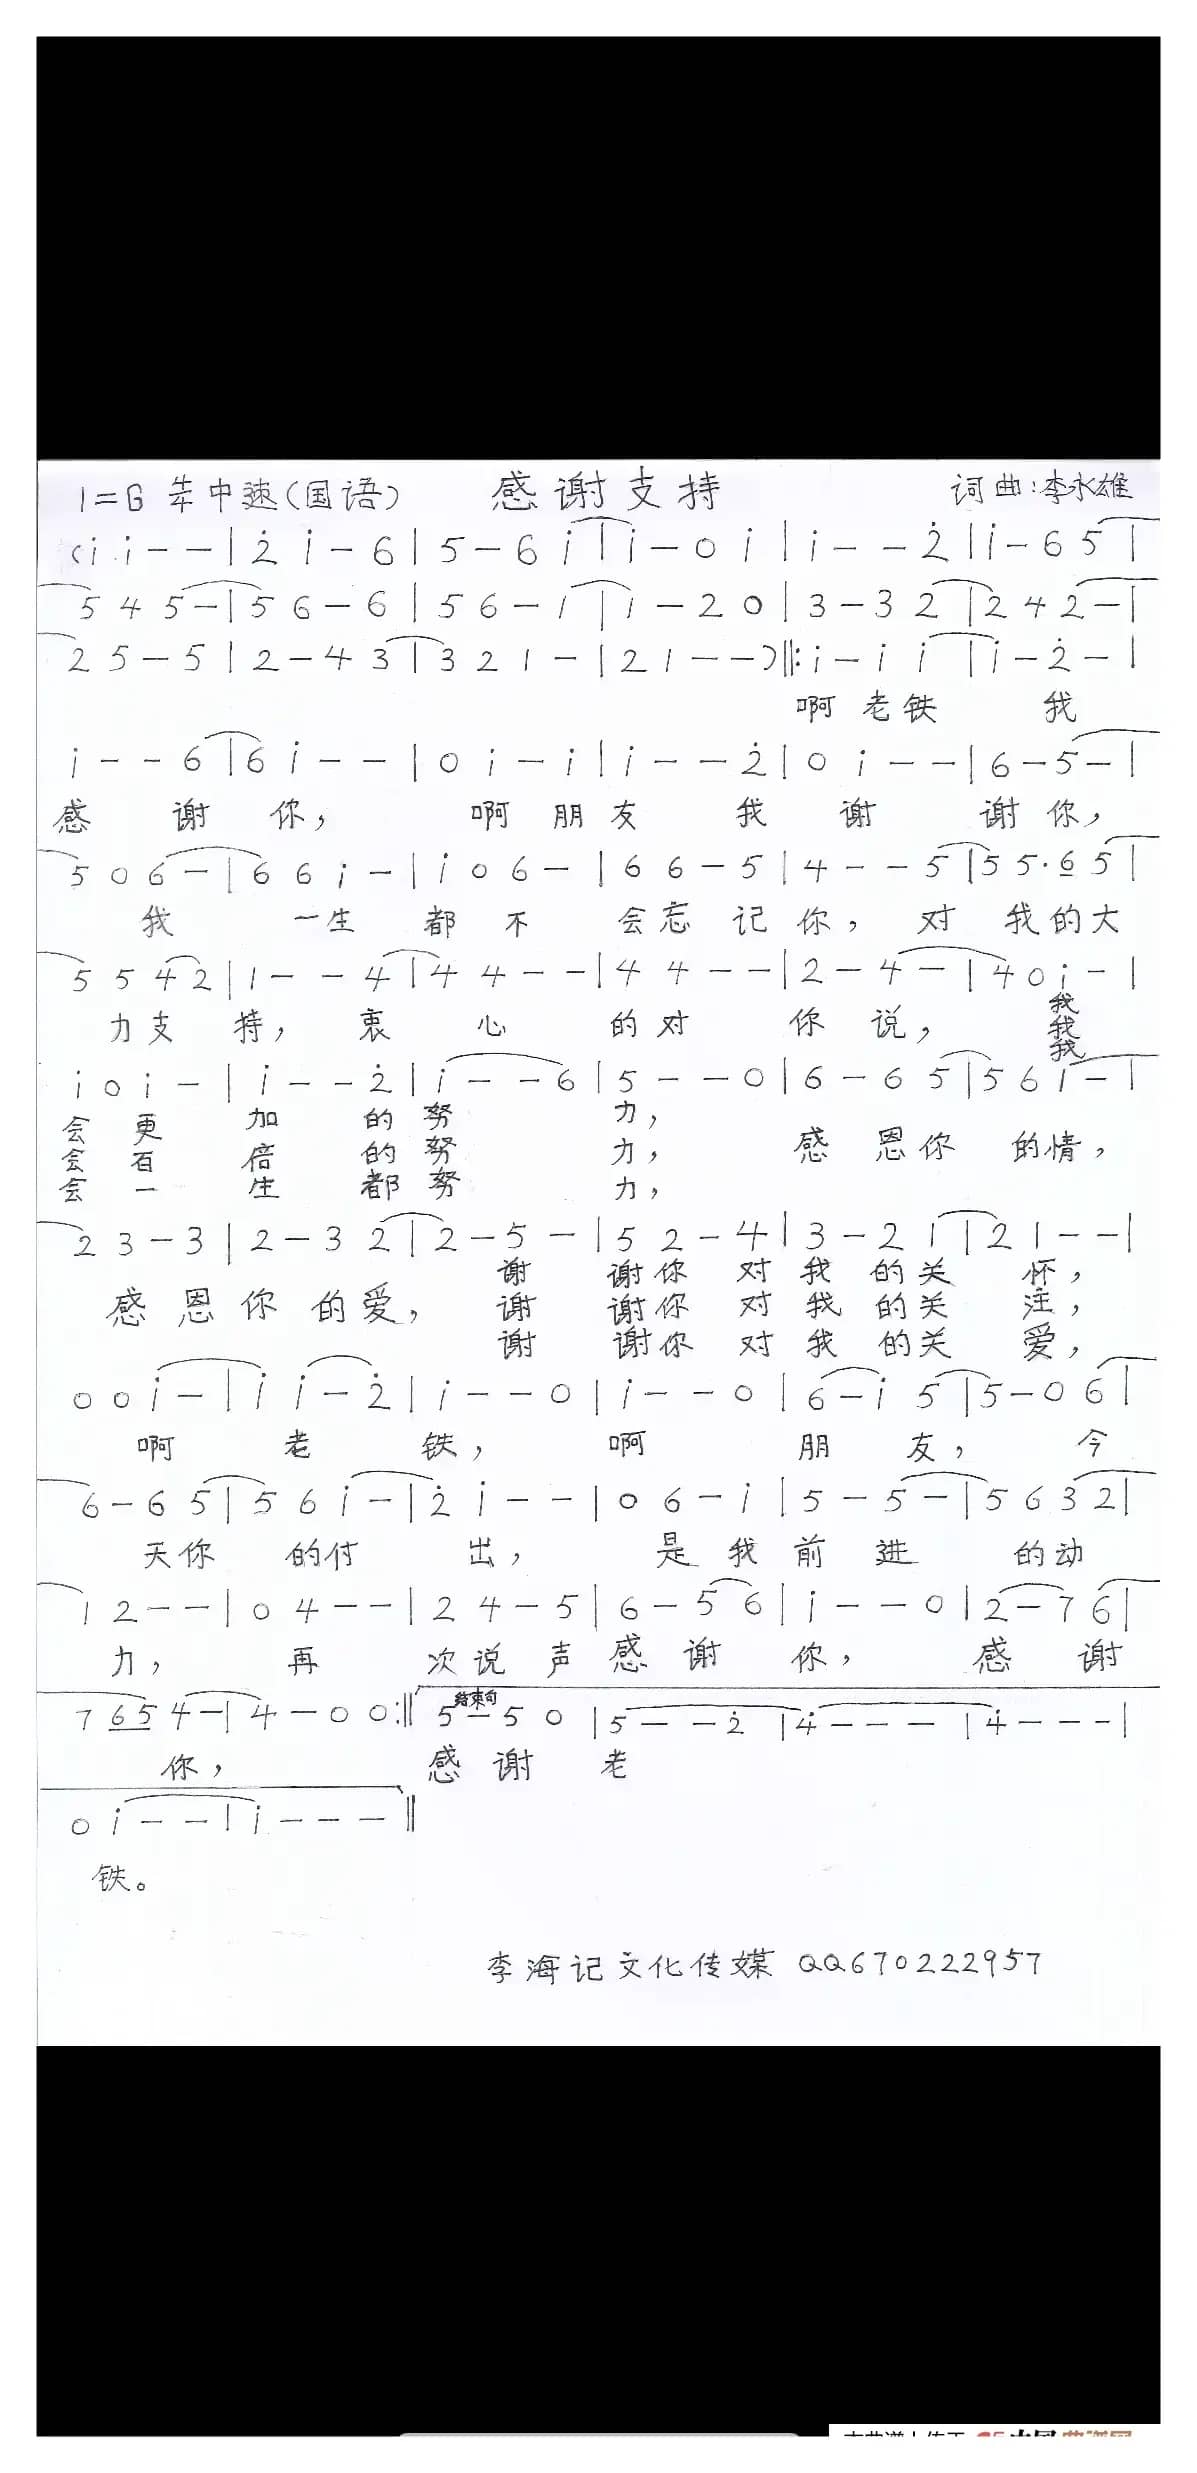 1=G 4/4 中速(国语) 感谢支持 词曲:李永雄
(i i - - | 2 i - 6 | 5 - 6 i | i - 0 i | i - - 2 | i - 6 5 |
5 4 5 - | 5 6 - 6 | 5 6 - 1 | 1 - 2 0 | 3 - 3 2 | 2 4 2 - |
2 5 - 5 | 2 - 4 3 | 3 2 1 - | 2 1 - - ) ||: i - i i | i - 2 - |
啊 老铁 我
i - - 6 | 6 i - - | 0 i - i | i - - 2 | 0 i - - | 6 - 5 - |
感 谢 你, 啊 朋 友 我 谢 谢 你,
5 0 6 - | 6 6 i - | i 0 6 - | 6 6 - 5 | 4 - - 5 | 5 5 · 6 5 |
我 一生 都 不 会忘 记 你, 对 我的大
5 5 4 2 | 1 - - 4 | 4 4 - - | 4 4 - - | 2 - 4 - | 4 0 i - |
力支 持, 衷 心 的对 你 说, 我
我
我
i 0 i - | i - - 2 | i - - 6 | 5 - - 0 | 6 - 6 5 | 5 6 1 - |
会 更 加 的 努 力,
会 百 倍 的 努 力, 感 恩你 的情,
会 一 生 都 努 力,
2 3 - 3 | 2 - 3 2 | 2 - 5 - | 5 2 - 4 | 3 - 2 1 | 2 1 - - |
谢 谢你 对 我 的关 怀,
感 恩 你 的爱, 谢 谢你 对 我 的关 注,
谢 谢你 对 我 的关 爱,
0 0 i - | i i - 2 | i - - 0 | i - - 0 | 6 - i 5 | 5 - 0 6 |
啊 老 铁, 啊 朋 友, 今
6 - 6 5 | 5 6 i - | 2 i - - | 0 6 - i | 5 - 5 - | 5 6 3 2 |
天你 的付 出, 是 我 前 进 的动
1 2 - - | 0 4 - - | 2 4 - 5 | 6 - 5 6 | i - - 0 | 2 - 7 6 |
力, 再 次说 声 感 谢 你, 感 谢
7 6 5 4 - | 4 - 0 0 :|| 结束句 5 - 5 0 | 5 - - 2 | 4 - - - | 4 - - - |
你, 感 谢 老
0 i - - | i - - - ||
铁。
李海记文化传媒 QQ670222957